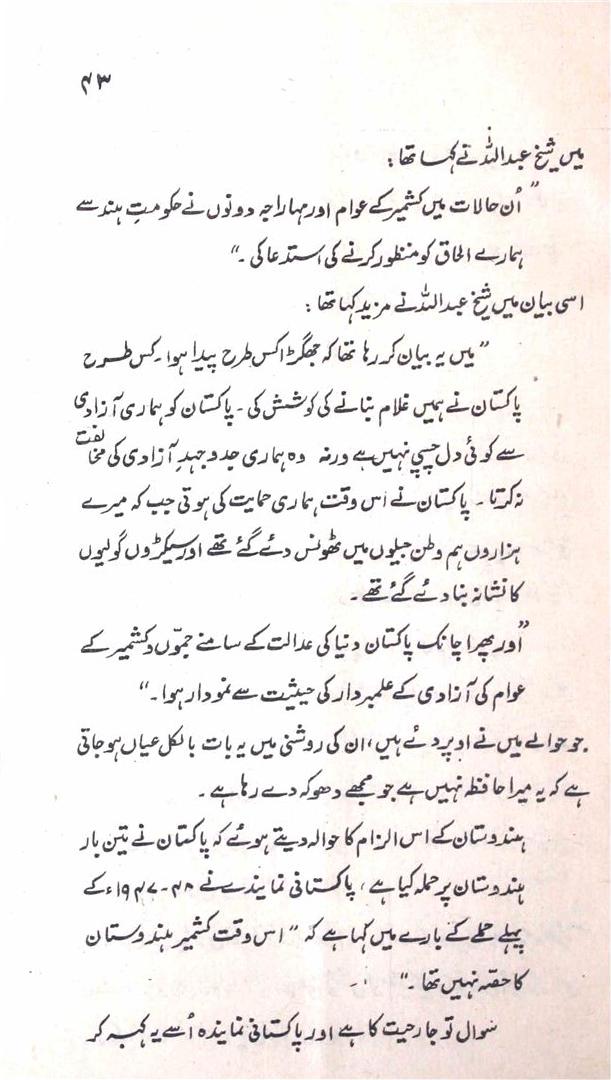 ۴۳
میں شیخ عبداللہ نے کہا تھا:
”اُن حالات میں کشمیر کے عوام اور مہاراجہ دونوں نے حکومتِ ہند سے
ہمارے الحاق کو منظور کرنے کی استدعا کی۔“
اسی بیان میں شیخ عبداللہ نے مزید کہا تھا:
”میں یہ بیان کر رہا تھا کہ جھگڑا کس طرح پیدا ہوا۔ کس طرح
پاکستان نے ہمیں غلام بنانے کی کوشش کی۔ پاکستان کو ہماری آزادی
سے کوئی دل چسپی نہیں ہے ورنہ وہ ہماری جدوجہدِ آزادی کی مخالفت
نہ کرتا۔ پاکستان نے اس وقت ہماری حمایت کی ہوتی جب کہ میرے
ہزاروں ہم وطن جیلوں میں ٹھونس دئے گئے تھے اور سیکڑوں گولیوں
کا نشانہ بنا دئے گئے تھے۔
”اور پھر اچانک پاکستان دنیا کی عدالت کے سامنے جمّوں و کشمیر کے
عوام کی آزادی کے علمبردار کی حیثیت سے نمودار ہوا۔“
جو حوالے میں نے اوپر دئے ہیں، ان کی روشنی میں یہ بات بالکل عیاں ہو جاتی
ہے کہ یہ میرا حافظہ نہیں ہے جو مجھے دھوکہ دے رہا ہے۔
ہندوستان کے اس الزام کا حوالہ دیتے ہوئے کہ پاکستان نے تین بار
ہندوستان پر حملہ کیا ہے، پاکستانی نمایندے نے ۴۸-۱۹۴۷ء کے
پہلے حملے کے بارے میں کہا ہے کہ ”اس وقت کشمیر ہندوستان
کا حصّہ نہیں تھا۔“
سوال تو جارحیت کا ہے اور پاکستانی نمایندہ اُسے یہ کہہ کر